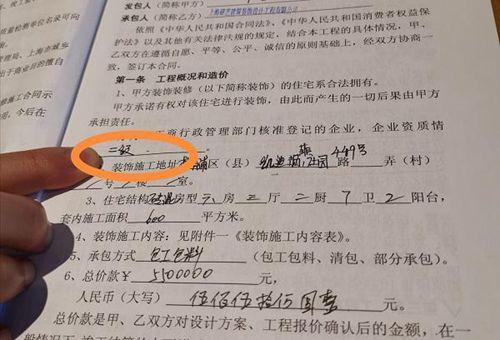 发包人（简称甲方）
量检测单位名录可向
承包人（简称乙方）
依照《中华人民共和国合同法》、《中华人民共和国消费者权益保
护法》以及其他有关法律法规的规定，结合本工程的具体情况，甲、
乙双方在遵循自愿、平等、公平、诚信的原则基础上，经双方协商一
致，签订本合同。
管理局、上海市城乡
于商业目的擅自
第一条 工程概况和造价
1、甲方装饰装修（以下简称装饰）的住宅系合法拥有。
甲方承诺有权对该住宅进行装饰，由此而产生的一切后果由甲方
承担责任。
工商行政管理部门核准登记的企业，企业资质情
二级
装饰施工地址 区（县） 路 449号 弄（村）
号 楼 室。
3、住宅结构 房型 六 房 三 厅 二 厨 7 卫 2 阳台，
套内施工面积 600 平方米。
4、装饰施工内容：见附件一《装饰施工内容表》。
5、承包方式 包工包料 （包工包料、清包、部分承包）。
6、总价款￥ 5500000 元，
人民币（大写） 伍佰伍拾万 元。
总价款是甲、乙双方对设计方案、工程报价确认后的金额，在一